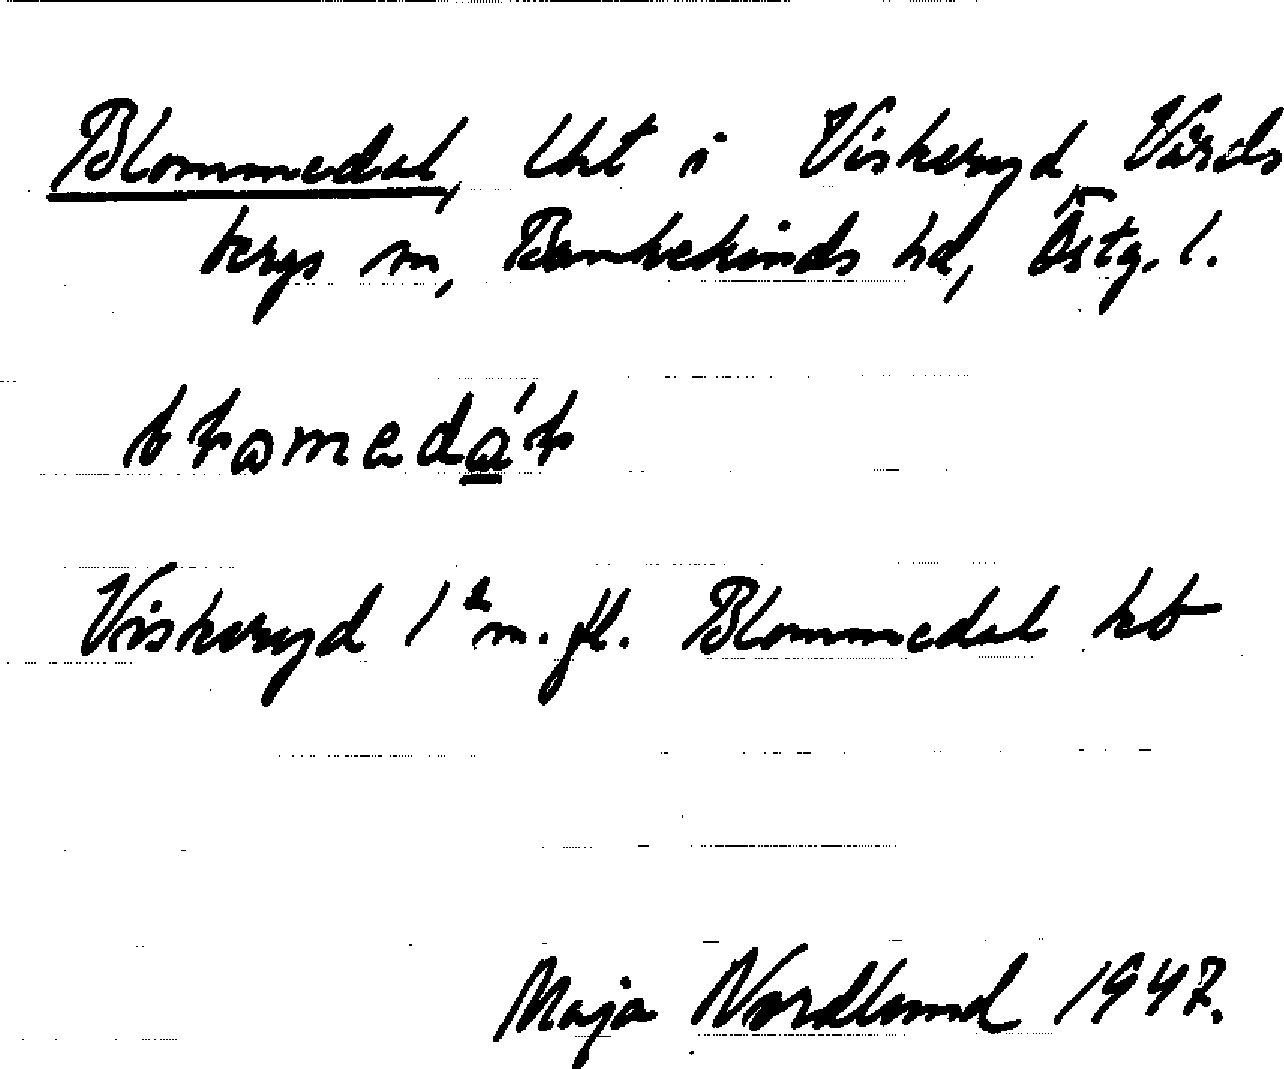 Blommedal, lht i Viskeryd Vårds
bergs sn, Bankekinds hd, Östg. l.
Viskeryd 1 m. fl. Blommedal kb
Maja Nordlund 1947.